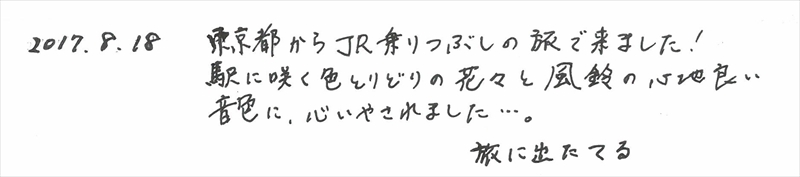 2017.8.18 東京都からJR乗りつぶしの旅で来ました!
駅に咲く色とりどりの花々と風鈴の心地良い
音色に、心いやされました…。
旅に出たてる